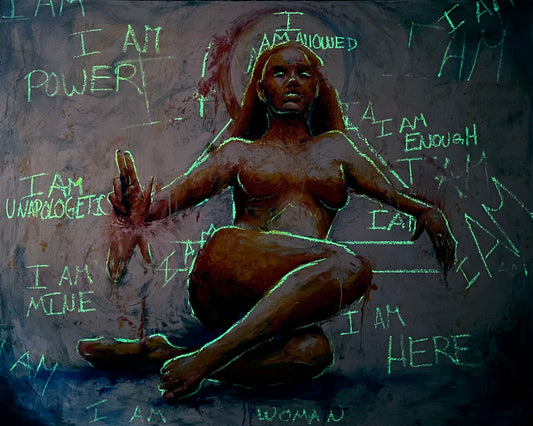 I AM
I
I AM
AM ALLOWED
I AM
POWER
I AM
ENOUGH
I AM
UNAPOLOGETIC
I AM
I AM
I AM
MINE
I AM
HERE
AM
I AM
WOMAN